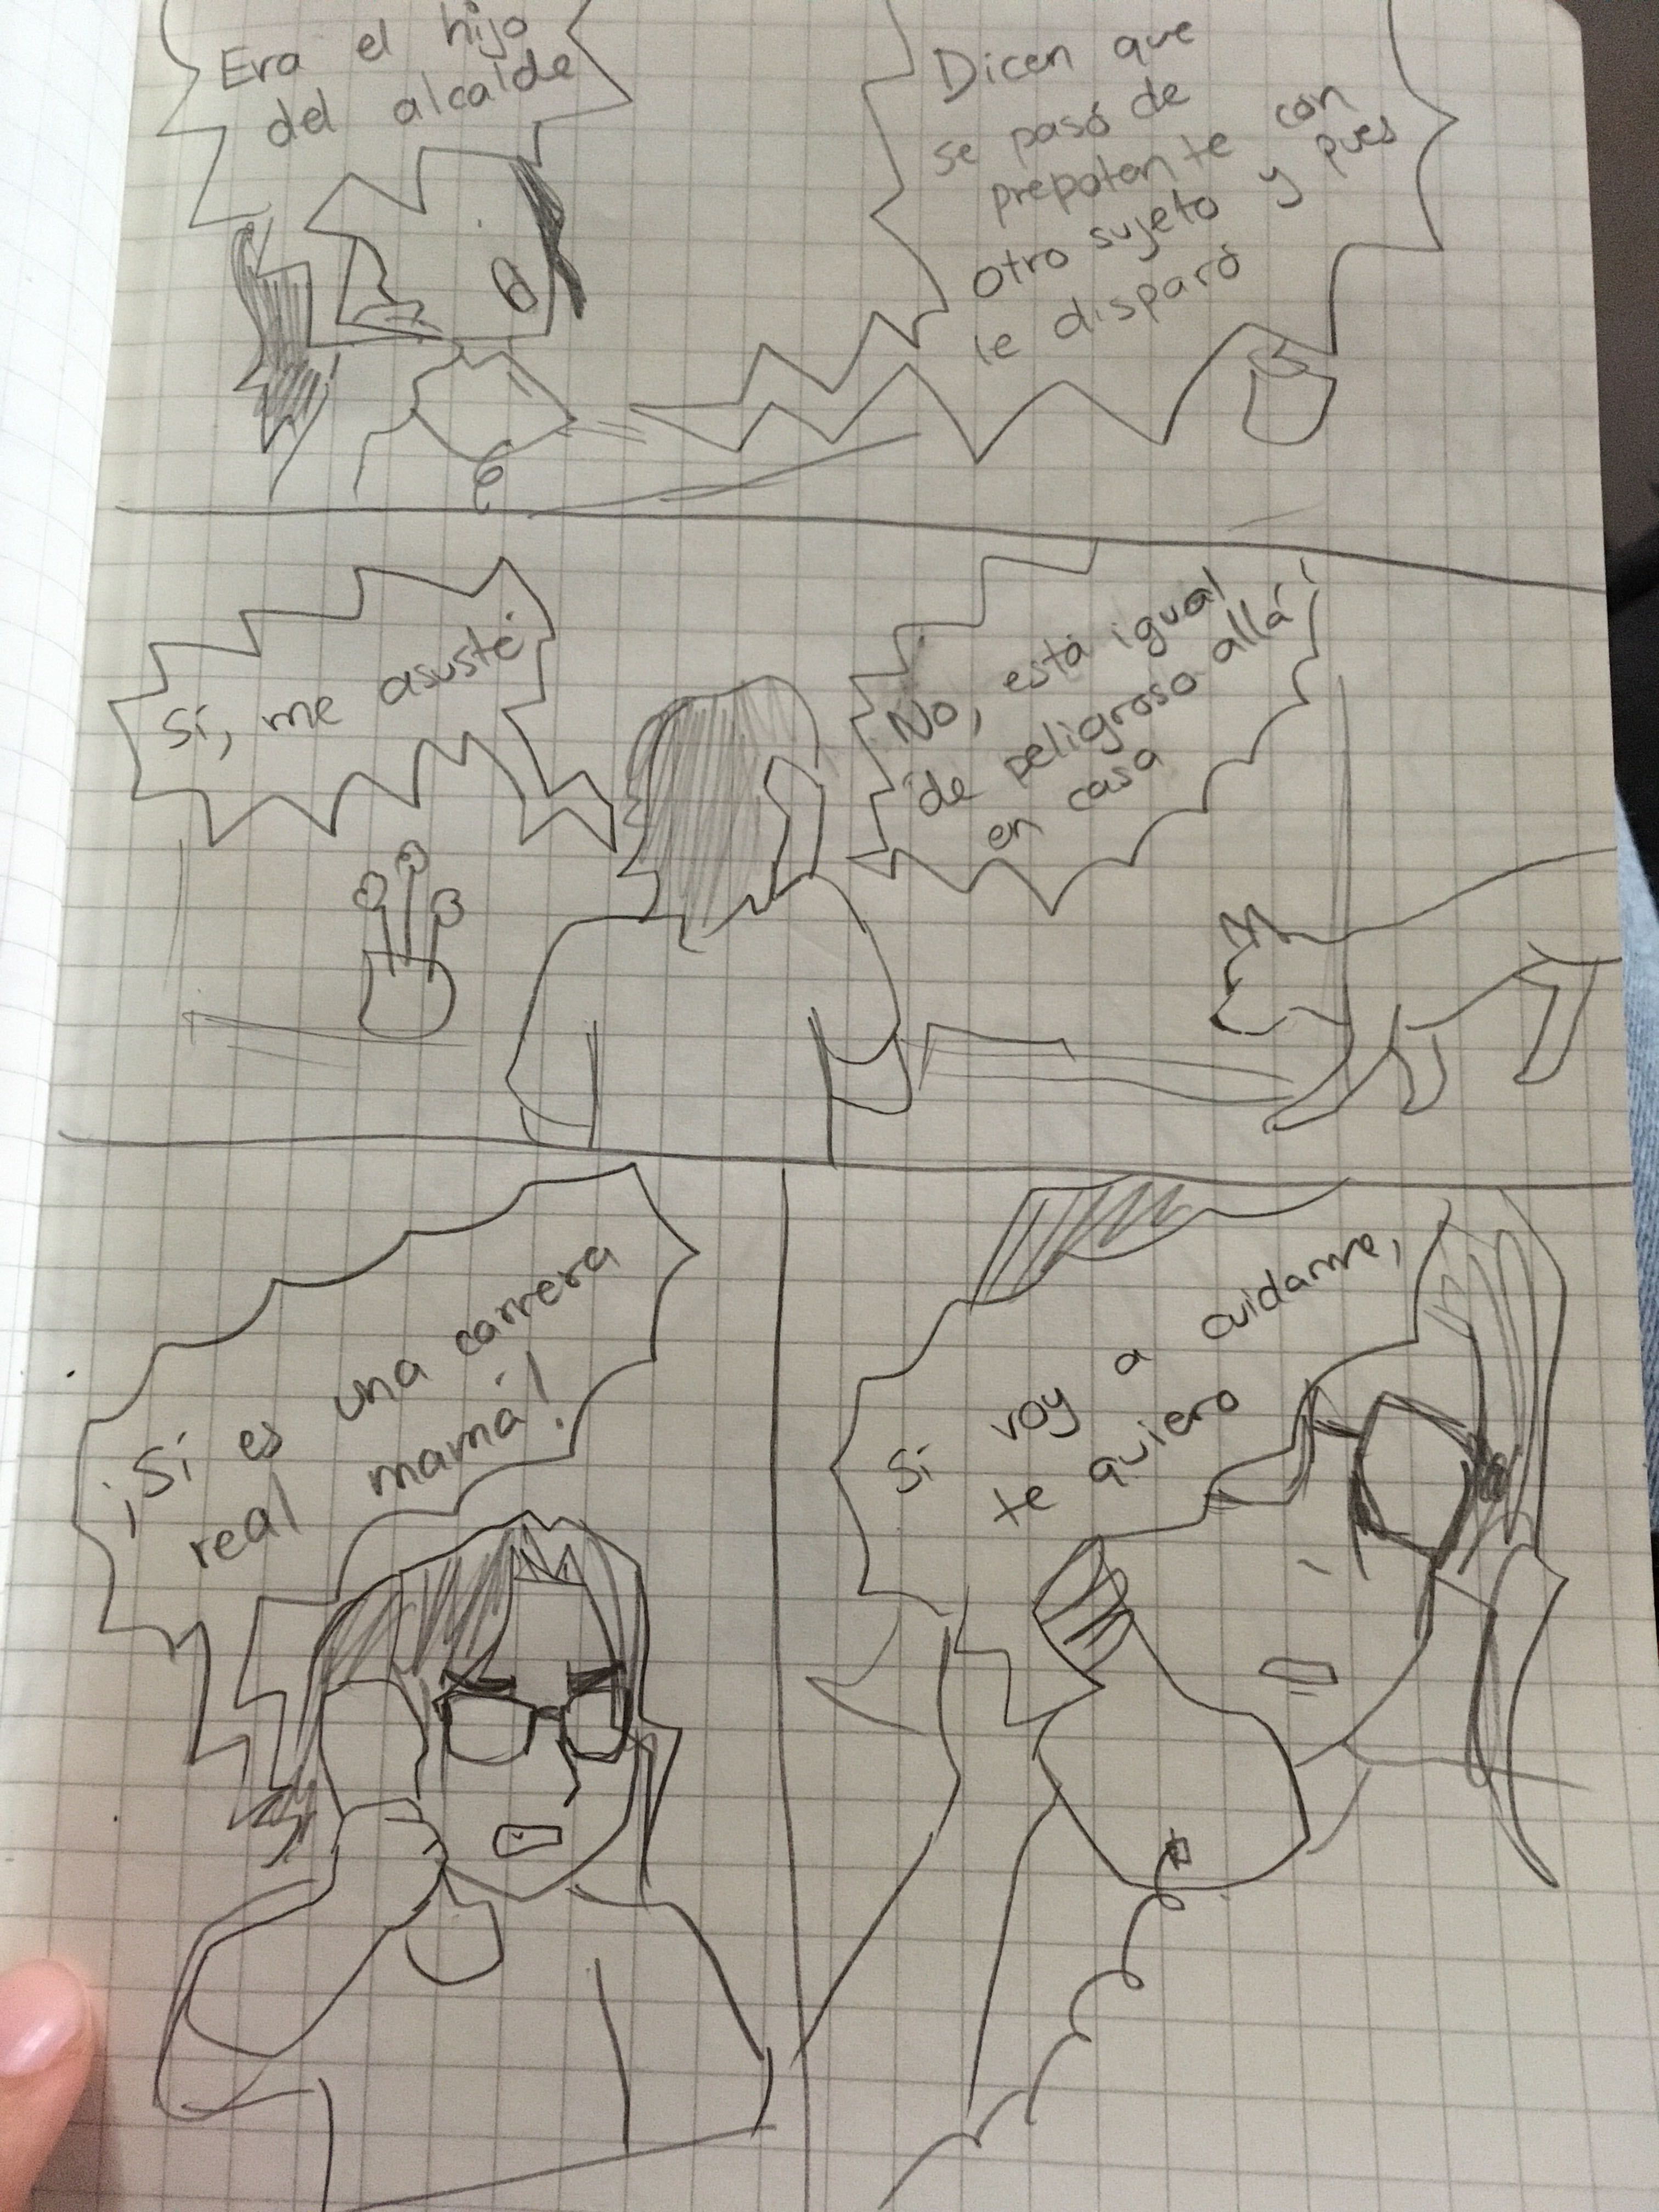 Era el hijo
del alcalde
Dicen que
se pasó de
prepotente con
otro sujeto y pues
le disparó
Sí, me asusté.
No, está igual
de peligroso allá
en casa
¡Sí es una carrera
real mamá!
Sí voy a cuidarme,
te quiero